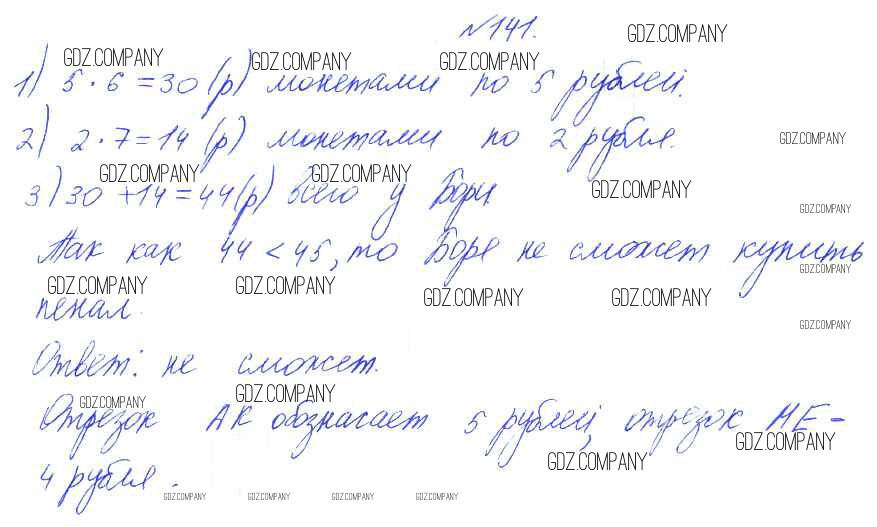 №141.
1) 5 · 6 = 30 (р) монетами по 5 рублей.
2) 2 · 7 = 14 (р) монетами по 2 рубля.
3) 30 + 14 = 44 (р) всего у Бори
Так как 44 < 45, то Боре не сможет купить
пенал.
Ответ: не сможет.
Отрезок АК обозначает 5 рублей, отрезок МЕ -
4 рубля.
GDZ.COMPANY
GDZ.COMPANY GDZ.COMPANY GDZ.COMPANY
GDZ.COMPANY
GDZ.COMPANY GDZ.COMPANY GDZ.COMPANY
GDZ.COMPANY
GDZ.COMPANY
GDZ.COMPANY GDZ.COMPANY GDZ.COMPANY GDZ.COMPANY
GDZ.COMPANY
GDZ.COMPANY GDZ.COMPANY
GDZ.COMPANY GDZ.COMPANY
GDZ.COMPANY GDZ.COMPANY GDZ.COMPANY GDZ.COMPANY